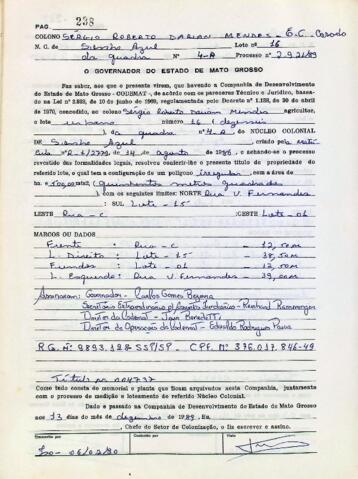 PAG 238
COLONO SÉRGIO ROBERTO DARIAN MENDES - E.C. Casado
N. C. de Sinhá Azul Lote nº 16
da quadra nº 4-A Processo nº 2.921/89
O GOVERNADOR DO ESTADO DE MATO GROSSO
Faz saber, aos que o presente virem, que havendo a Companhia de Desenvolvimento
do Estado de Mato Grosso - CODEMAT -, de acordo com os pareceres Técnico e Jurídico, basea-
do na Lei nº 2.898, de 10 de junho de 1969, regulamentada pelo Decreto nº 1.138, de 20 de abril
de 1970, concedido, ao colono Sérgio Roberto Darian Mendes agricultor, o
lote urbano nº 16 (dezesseis)
da quadra nº 4-A, do NÚCLEO COLONIAL
DE Azul, criado pela
nº R-6/2779, de 14 de agosto de 1986, e achando-se o processo
revestido das formalidades legais, resolveu conferir-lhe o presente título de propriedade do
referido lote, o qual tem a configuração de um polígono irregular, com a área de
500,00m² (Quinhentos metros quadrados)
com os seguintes limites: NORTE Rua V. Fernandes
SUL Lote - 15
LESTE Rua - C OESTE Lote - 01
MARCOS OU DADOS
Frente : Rua - C 12,50m
L. Direito : Lote - 15 38,50m
Fundos : Lote - 01 12,50m
L. Esquerdo : Rua V. Fernandes 39,00m
Assinaram: Governador - Carlos Gomes Bezerra
Secretário Extraordinário p/ Assuntos Fundiários -
Diretor da Codemat - Jair Benedetti
Diretor de Operações da Codemat - Edvaldo Rodrigues Paiva
R.G. Nº 9893.128 SSP/SP - CPF. Nº 376.017.846-49
Título nº 004737
Como tudo consta do memorial e planta que ficam arquivados nesta Companhia, juntamente
com o processo de medição e loteamento do referido Núcleo Colonial.
Dado e passado na Companhia de Desenvolvimento do Estado de Mato Grosso
aos 13 dias do mês de dezembro de 1989. Eu,
, Chefe do Setor de Colonização, o fiz escrever e assino.
Transcrito por
Conferido por
Visto
06/02/90